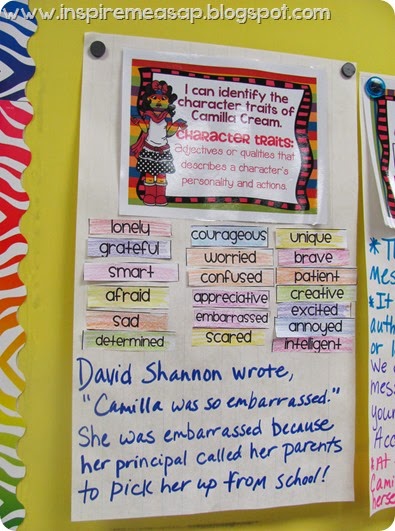 www.inspiremeasap.blogspot.com
I can identify the
character traits of
Camilla Cream.
CHARACTER TRAITS:
Adjectives or qualities that
describes a character's
personality and actions.
lonely
grateful
smart
afraid
sad
determined
courageous
worried
confused
appreciative
embarrassed
scared
unique
brave
patient
creative
excited
annoyed
intelligent
David Shannon wrote,
"Camilla was so embarrassed."
She was embarrassed because
her principal called her parents
to pick her up from school!
*Th
mes
*It
auth
or l
We c
mess
your
Acc
*At
Cami
herse